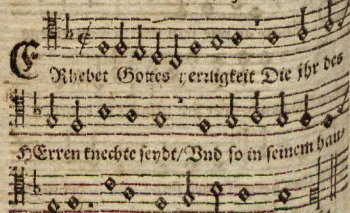 ERhebet Gottes herrligkeit Die ihr des
HErren knechte seydt/Vnd so in seinem hau